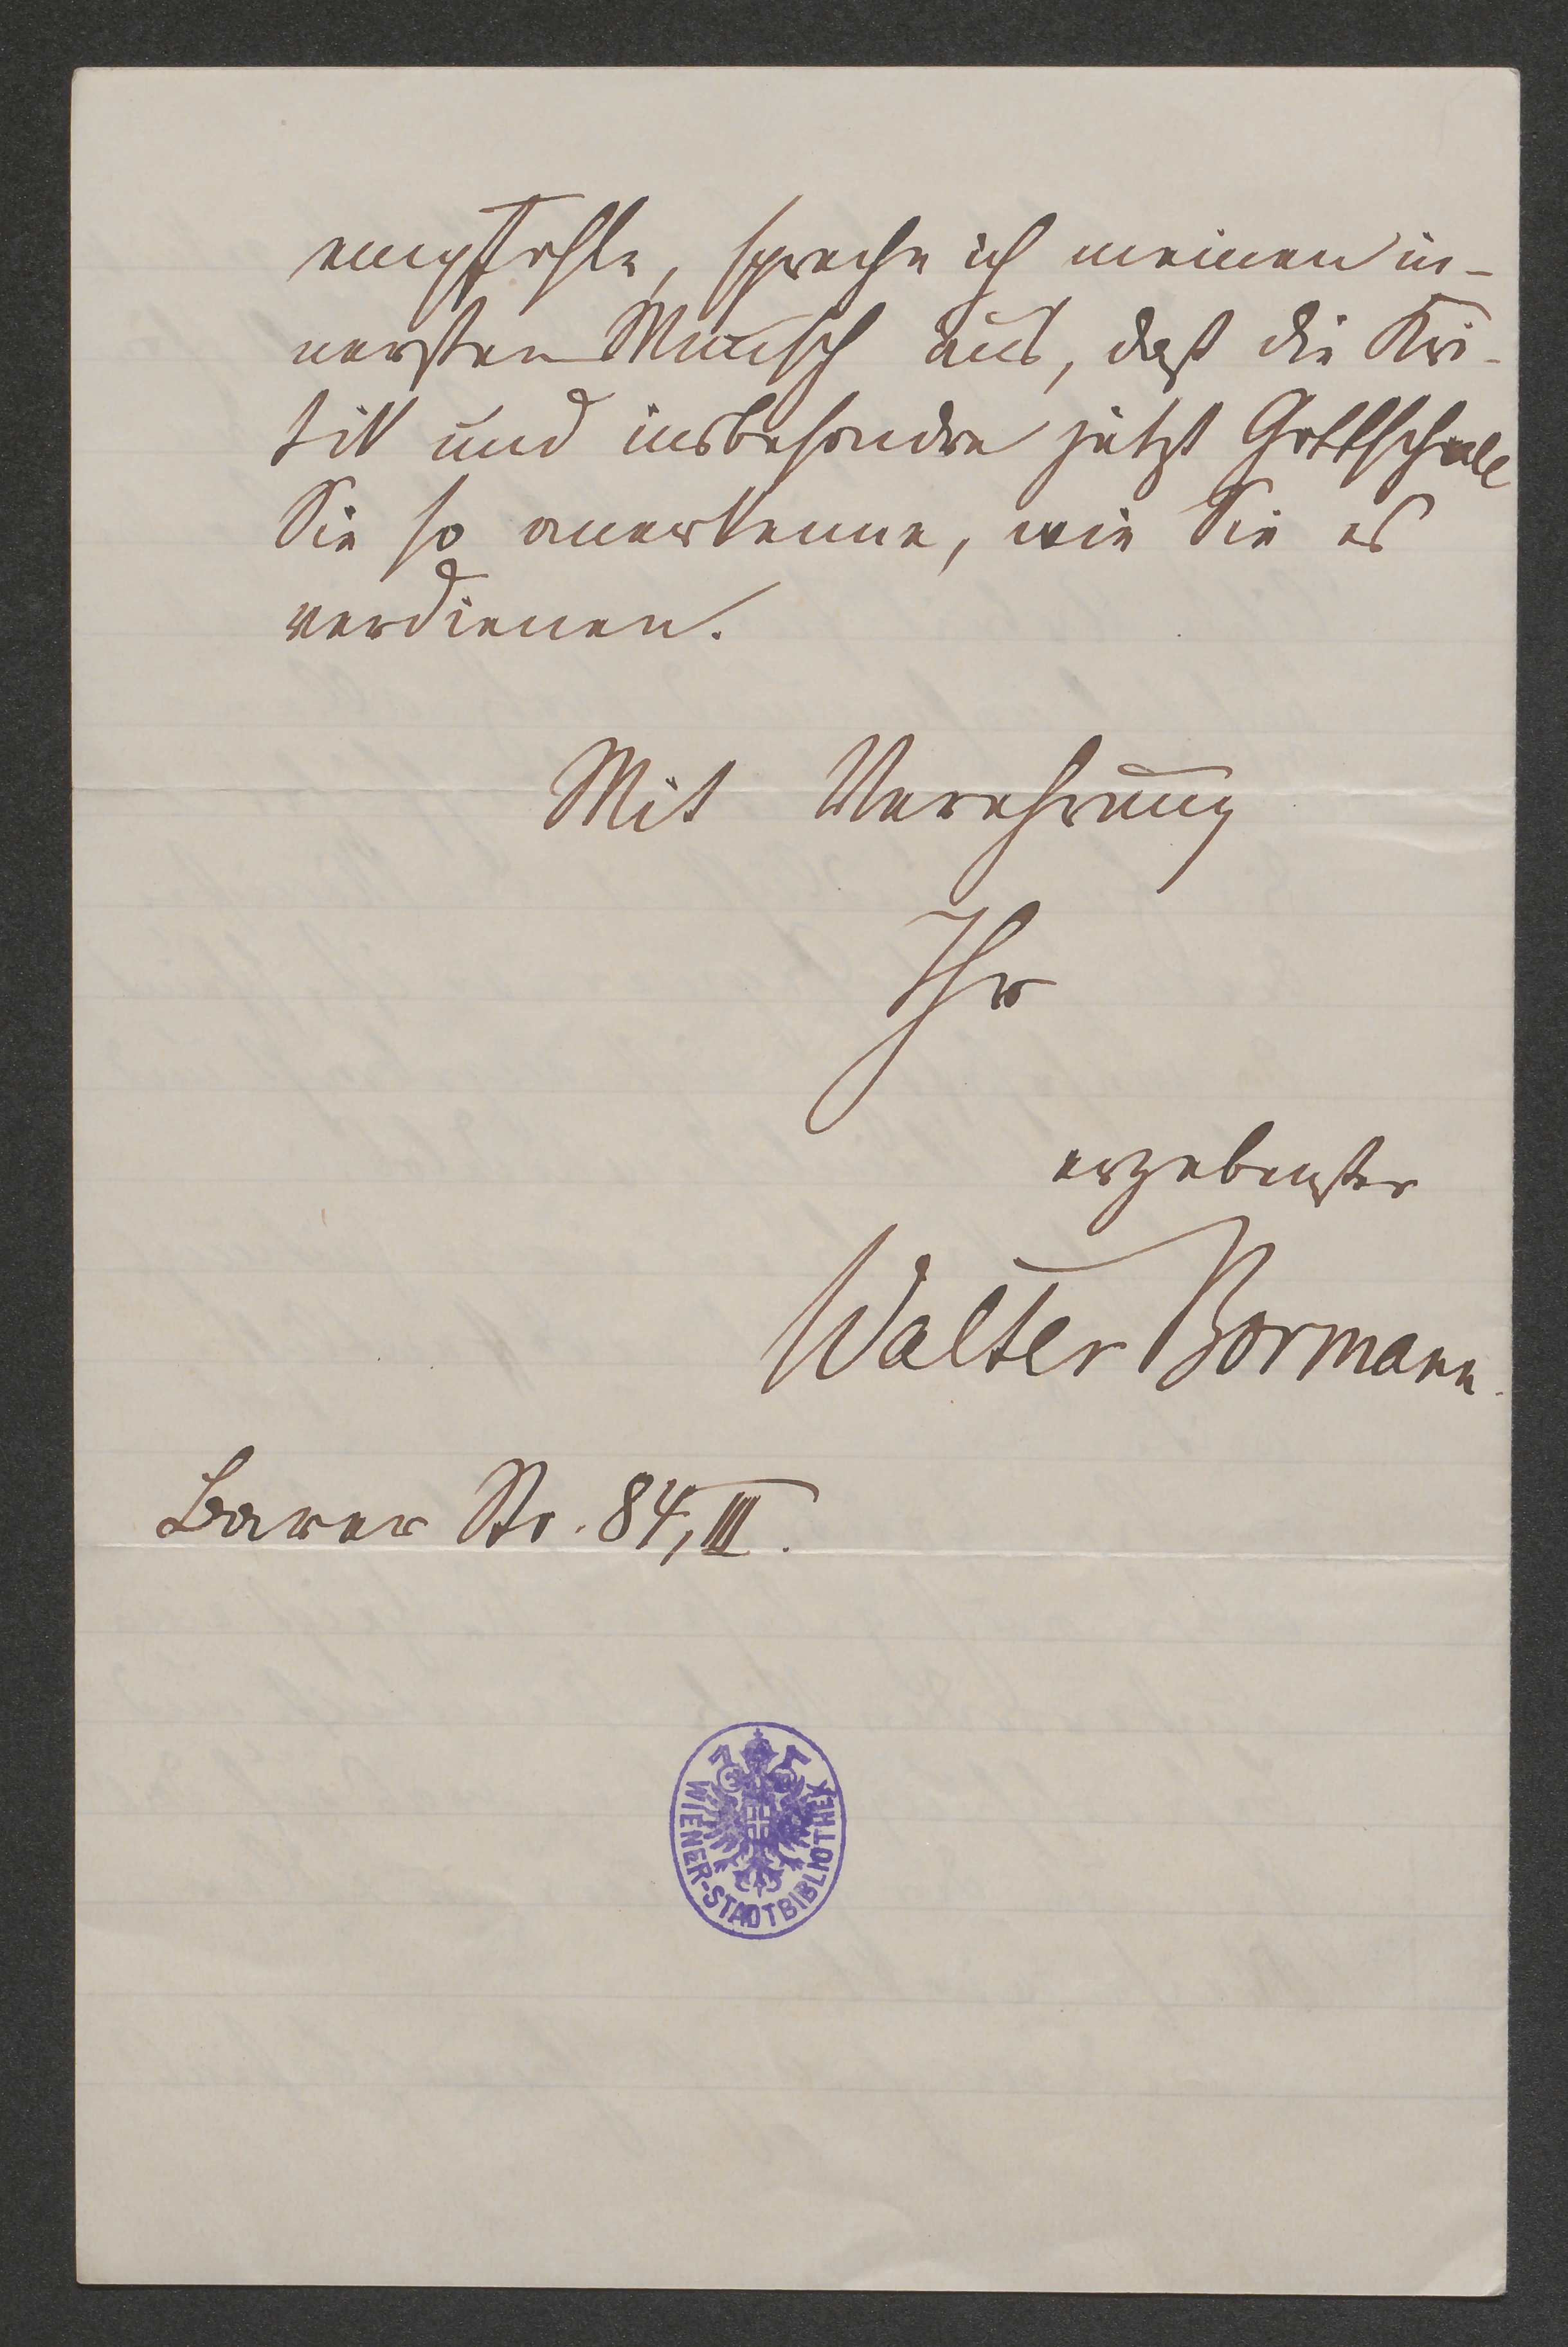 empfehle, spreche ich meinen in-
nersten Wunsch aus, daß die Kri-
tik und insbesondre jetzt Gottschall
Sie so anerkenne, wie Sie es
verdienen.
Mit Verehrung
Ihr
ergebenster
Walter Bormann.
Barer Str. 84, III.
WIENER-STADTBIBLIOTHEK